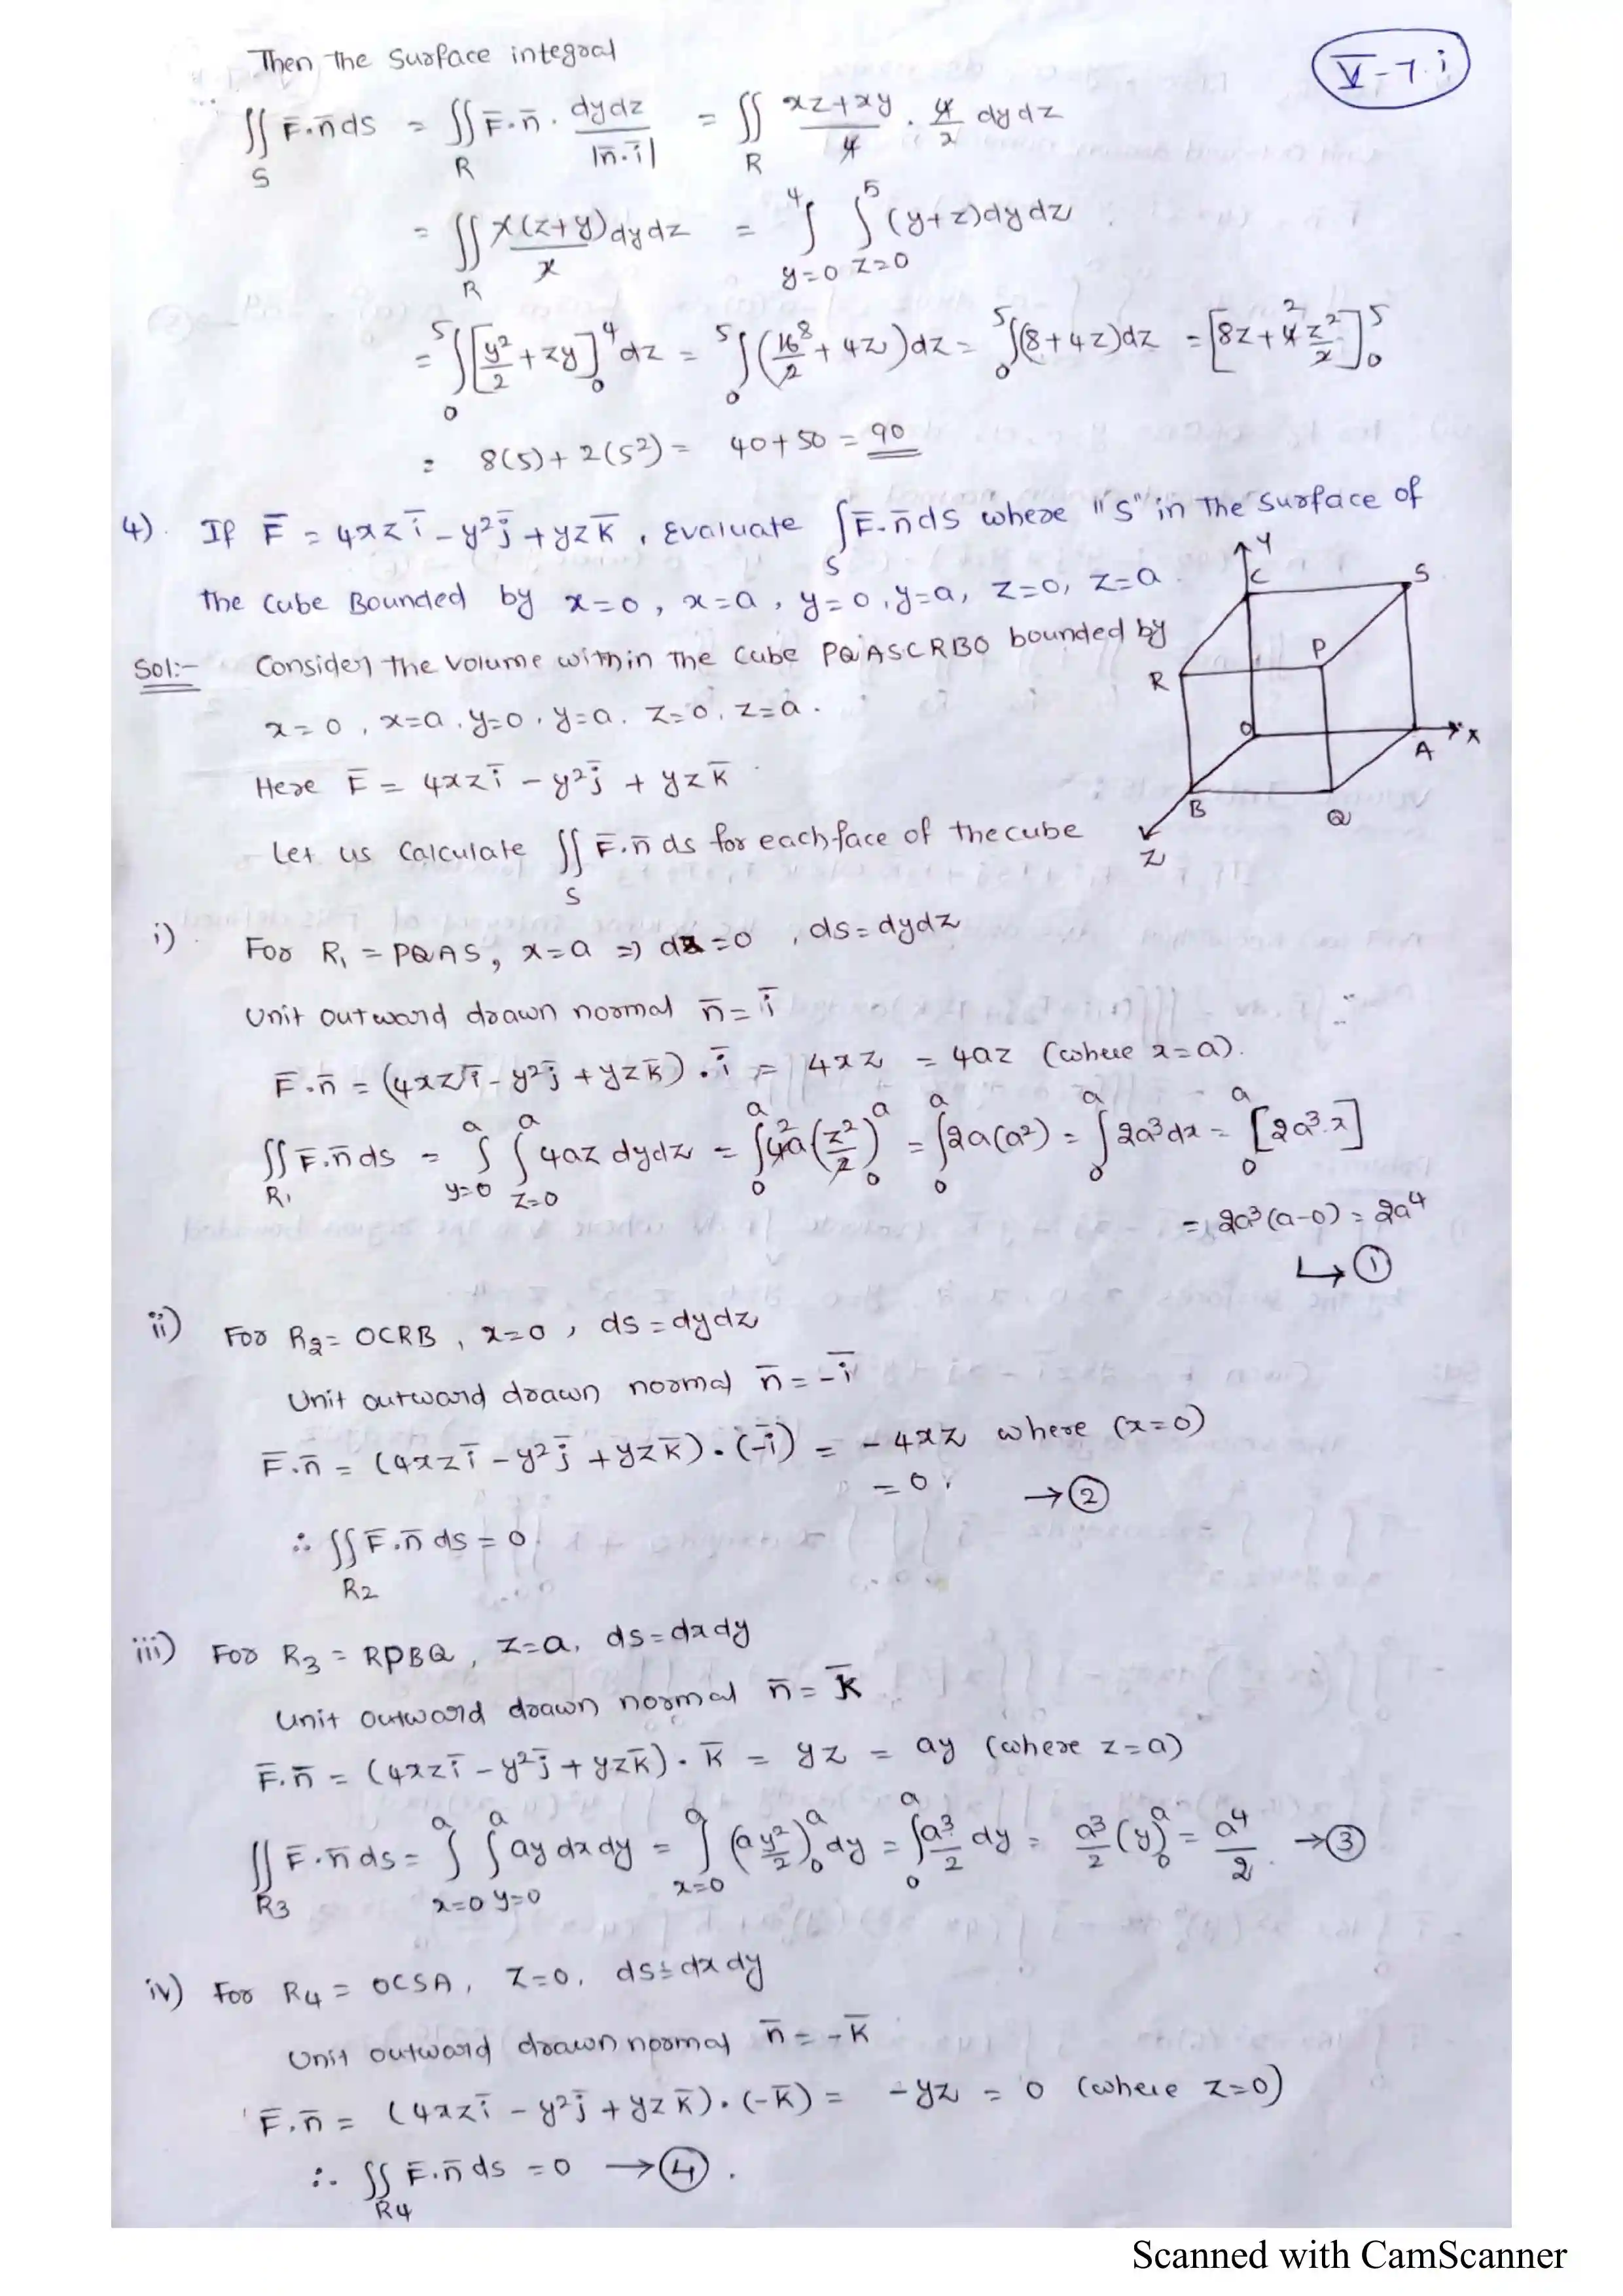 V-7.i
Then the surface integral
∬_S F̄.n̄ ds = ∬_R F̄.n̄ . dydz/|n̄.ī| = ∬_R (xz+xy)/4 . 4/x dydz
= ∬_R x(z+y)/x dydz = ∫_{y=0}^{4} ∫_{z=0}^{5} (y+z)dydz
= ∫_0^5 [y²/2 + zy]_0^4 dz = ∫_0^5 (16/2 + 4z)dz = ∫_0^5 (8+4z)dz = [8z + 4 z²/2]_0^5
= 8(5)+2(5²) = 40+50 = 90
4). If F̄ = 4xzī - y²j̄ + yzk̄, Evaluate ∫_S F̄.n̄ds where "S" in the surface of
the cube Bounded by x=0, x=a, y=0, y=a, z=0, z=a.
Sol:- Consider the volume within the cube PQASCRBO bounded by
x=0, x=a, y=0, y=a, z=0, z=a.
Y
C
S
P
R
O
A
X
B
Q
Z
Here F̄ = 4xzī - y²j̄ + yzk̄
Let us calculate ∬_S F̄.n̄ ds for each face of the cube
i) For R₁ = PQAS, x=a ⇒ dx=0, ds=dydz
Unit outward drawn normal n̄ = ī
F̄.n̄ = (4xzī - y²j̄ + yzk̄).ī = 4xz = 4az (where x=a).
∬_{R₁} F̄.n̄ds = ∫_{y=0}^{a} ∫_{z=0}^{a} 4az dydz = ∫_0^a 4a(z²/2)_0^a = ∫_0^a 2a(a²) = ∫_0^a 2a³dx = [2a³.x]_0^a
= 2a³(a-0) = 2a⁴
↳ ①
ii) For R₂ = OCRB, x=0, ds=dydz
Unit outward drawn normal n̄ = -ī
F̄.n̄ = (4xzī - y²j̄ + yzk̄).(-ī) = -4xz where (x=0)
= 0. → ②
∴ ∬_{R2} F̄.n̄ ds = 0
iii) For R₃ = RPBQ, z=a, ds=dxdy
Unit outward drawn normal n̄ = k̄
F̄.n̄ = (4xzī - y²j̄ + yzk̄).k̄ = yz = ay (where z=a)
∬_{R3} F̄.n̄ds = ∫_{x=0}^{a} ∫_{y=0}^{a} ay dxdy = ∫_{x=0}^{a} (a y²/2)_0^a dy = ∫_0^a a³/2 dy = a³/2 (y)_0^a = a⁴/2. → ③
iv) For R₄ = OCSA, z=0, ds=dxdy
Unit outward drawn normal n̄ = -k̄
F̄.n̄ = (4xzī - y²j̄ + yzk̄).(-k̄) = -yz = 0 (where z=0)
∴ ∬_{R4} F̄.n̄ds = 0 → ④.
Scanned with CamScanner